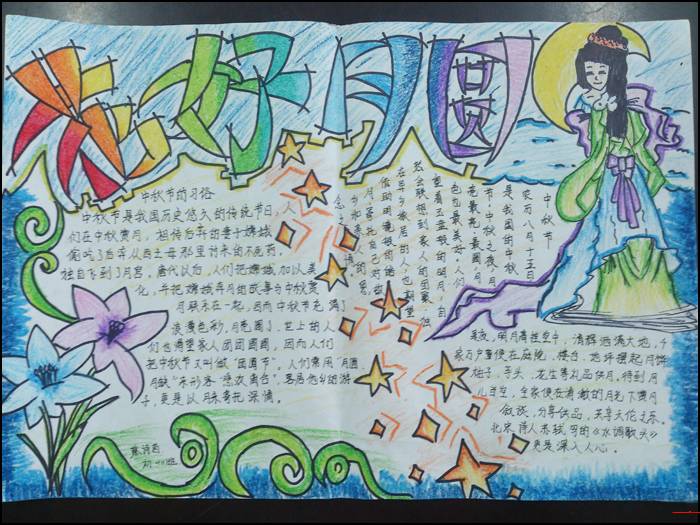 花好月圆
中秋节的习俗
中秋节是我国历史悠久的传统节日,人
们在中秋赏月,相传后羿的妻子嫦娥
偷吃了后羿从西王母那里讨来的不死药,
独自飞到了月宫。唐代以后,人们把嫦娥加以美
化,并把嫦娥奔月的故事与中秋赏
月联系在一起,因而中秋节充满了
浪漫色彩,月亮圆了,世上的人
们也希望家人团团圆圆,因而人们
把中秋节又叫做“团圆节”。人们常用“月圆
月缺”来形容“悲欢离合”,客居他乡的游
子,更是以月来寄托深情。
中秋节
农历八月十五日
是我国的中秋
节。中秋之夜,月
亮最亮、最圆,月
色也最美好。人们
望着玉盘般的明月,自
然会联想到家人的团聚。独
在异乡旅居的人,也期望
借助明月
月寄托自己对故
乡和亲人的
念之情。
是夜,明月高挂空中,清辉洒满大地,千
家万户便在庭院、楼台、地坪摆起月饼
柚子、芋头、花生等礼品供月,待到月
儿当空,全家便在清澈的月光下赏月
叙旧,分享供品,共享天伦之乐。
北宋诗人苏轼写的《水调歌头》
更是深入人心。